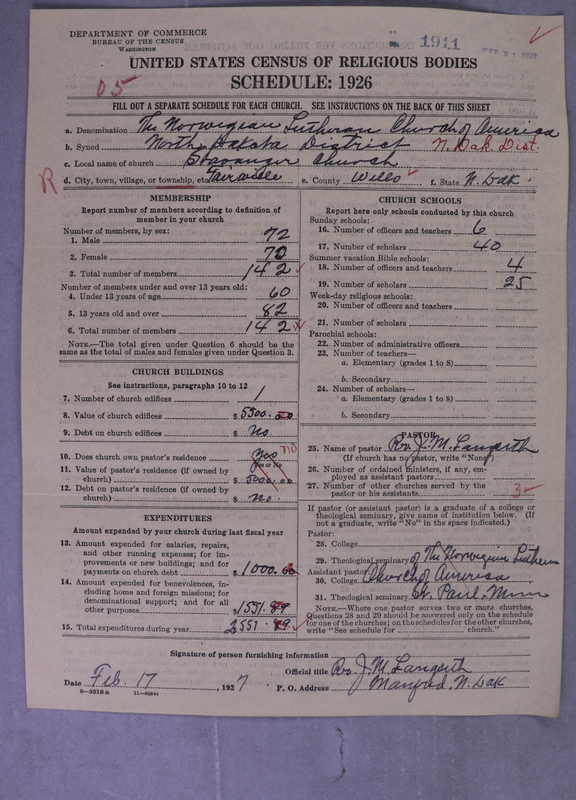 DEPARTMENT OF COMMERCE
BUREAU OF THE CENSUS
WASHINGTON
1911
UNITED STATES CENSUS OF RELIGIOUS BODIES
05
SCHEDULE: 1926
FILL OUT A SEPARATE SCHEDULE FOR EACH CHURCH. SEE INSTRUCTIONS ON THE BACK OF THIS SHEET
a. Denomination The Norwegian Lutheran Church of America
b. Synod North Dakota District N. Dak. Dist.
c. Local name of church Stavanger Church
R d. City, town, village, or township, etc. Fairville e. County Wells f. State N. Dak.
MEMBERSHIP
Report number of members according to definition of
member in your church
Number of members, by sex:
1. Male 72
2. Female 70
3. Total number of members 142
Number of members under and over 13 years old:
4. Under 13 years of age 60
5. 13 years old and over 82
6. Total number of members 142
NOTE.—The total given under Question 6 should be the
same as the total of males and females given under Question 3.
CHURCH BUILDINGS
See instructions, paragraphs 10 to 12
7. Number of church edifices 1
8. Value of church edifices $ 5500.00
9. Debt on church edifices $ No
10. Does church own pastor's residence Yes no
(Yes or No)
11. Value of pastor's residence (if owned by
church) $ 5000.00
12. Debt on pastor's residence (if owned by
church) $ no.
EXPENDITURES
Amount expended by your church during last fiscal year
13. Amount expended for salaries, repairs,
and other running expenses; for im-
provements or new buildings; and for
payments on church debt $ 1000.00
14. Amount expended for benevolences, in-
cluding home and foreign missions; for
denominational support; and for all
other purposes $ 1551.89
15. Total expenditures during year 2551.89
CHURCH SCHOOLS
Report here only schools conducted by this church
Sunday schools:
16. Number of officers and teachers 6
17. Number of scholars 40
Summer vacation Bible schools:
18. Number of officers and teachers 4
19. Number of scholars 25
Week-day religious schools:
20. Number of officers and teachers
21. Number of scholars
Parochial schools:
22. Number of administrative officers
23. Number of teachers—
a. Elementary (grades 1 to 8)
b. Secondary
24. Number of scholars—
a. Elementary (grades 1 to 8)
b. Secondary
PASTOR
25. Name of pastor Rev. J. M. Langseth
(If church has no pastor, write "None")
26. Number of ordained ministers, if any, em-
ployed as assistant pastors
27. Number of other churches served by the
pastor or his assistants 3
If pastor (or assistant pastor) is a graduate of a college or
theological seminary, give name of institution below. (If
not a graduate, write "No" in the space indicated.)
Pastor:
28. College
29. Theological seminary of The Norwegian Lutheran
Assistant pastor:
30. College Church of America
31. Theological seminary St. Paul, Minn
NOTE.—Where one pastor serves two or more churches,
Questions 28 and 29 should be answered only on the schedule
for one of the churches; on the schedules for the other churches,
write "See schedule for church."
Signature of person furnishing information
Official title Rev. J. M. Langseth
Date Feb. 17, 1927 P. O. Address Manfred, N. Dak
8—5518a